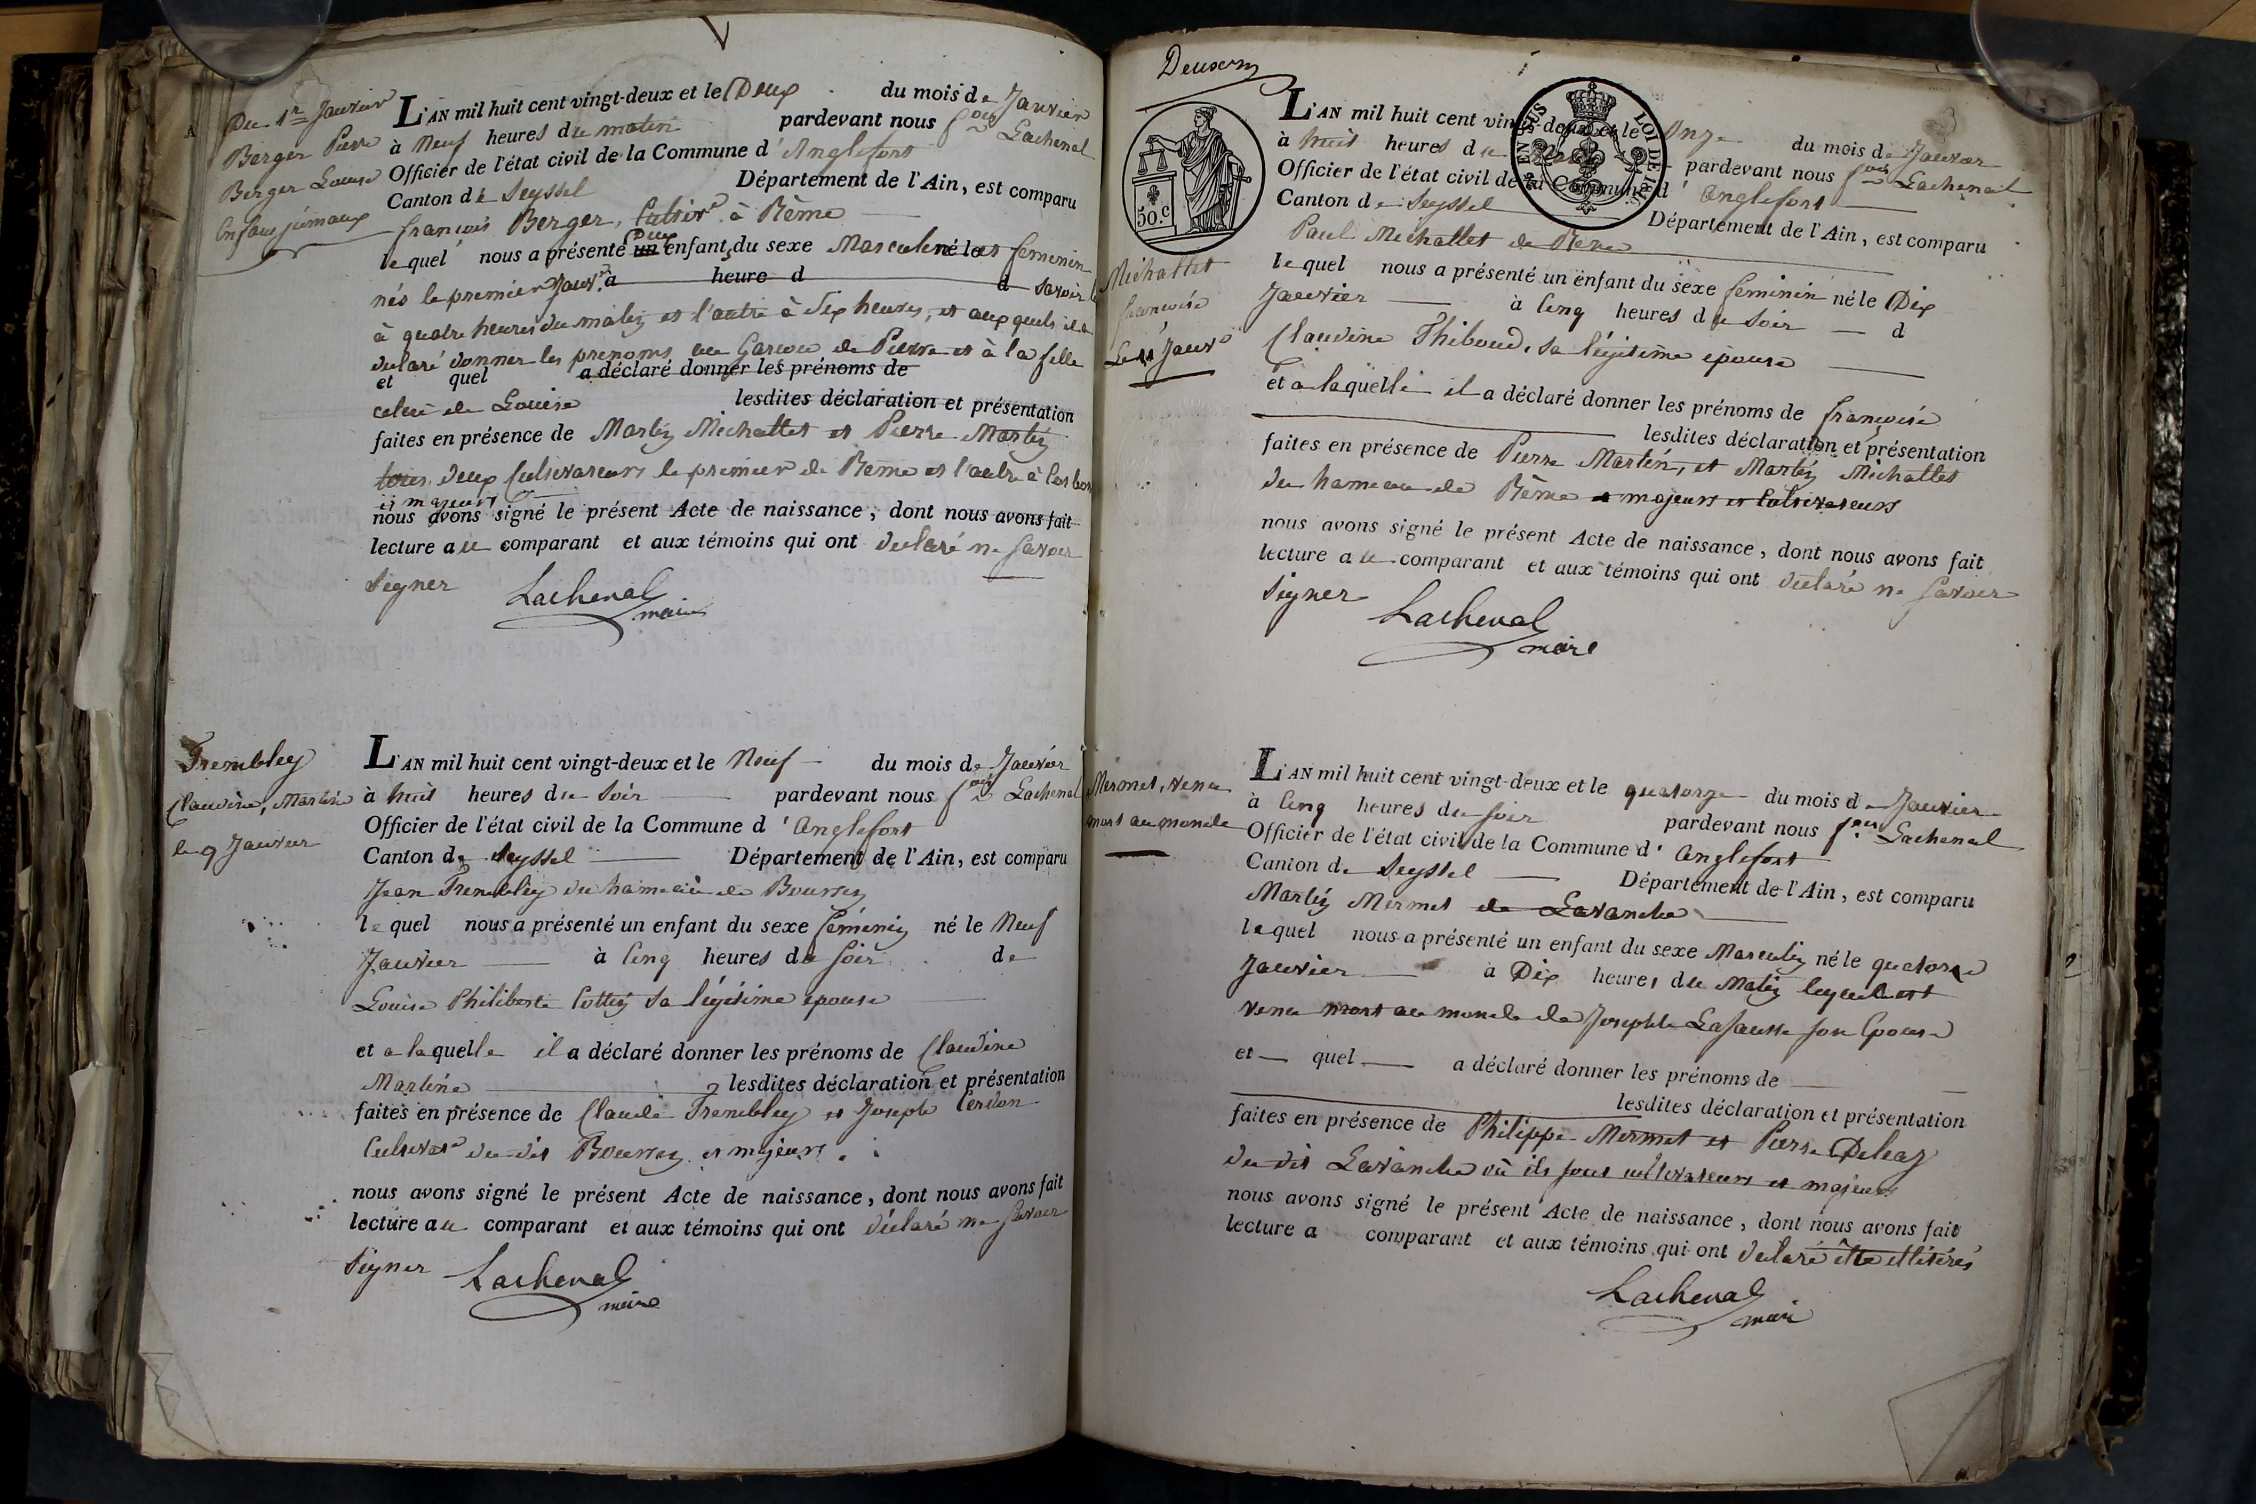 Du 1er Janvier
Berger Pierre
Berger Louise
Enfans jumaux
L'AN mil huit cent vingt-deux et le Deux du mois de Janvier
à Neuf heures du matin pardevant nous fois Lachenal
Officier de l'état civil de la Commune d'Anglefort
Canton de Seyssel Département de l'Ain, est comparu
françois Berger, Cultivr à Rème
lequel nous a présenté un Deux enfants du sexe Masculin né le et feminin
nés le premier Janvr à heure d d savoir l
à quatre heures du matin et l'autre à Six heures, et auxquels il a
declaré donner les prenoms au Garcon de Pierre et à la fille
et quel a déclaré donner les prénoms de
celui de Louise lesdites déclaration et présentation
faites en présence de Martin Michallet et Pierre Martin
tous deux Cultivateurs le premier de Rème et l'autre à
et majeurs
nous avons signé le présent Acte de naissance, dont nous avons fait
lecture au comparant et aux témoins qui ont declaré ne savoir
Signer Lachenal
maire
Trembley
Claudine, Martine
le 9 Janvier
L'AN mil huit cent vingt-deux et le Neuf du mois de Janvier
à huit heures du Soir pardevant nous fois Lachenal
Officier de l'état civil de la Commune d'anglefort
Canton de Seyssel Département de l'Ain, est comparu
Jean Trembley du hameau de
lequel nous a présenté un enfant du sexe féminin né le Neuf
Janvier à Cinq heures du Soir de
Louise Philiberte Cottin sa légitime epouse
et a laquelle il a déclaré donner les prénoms de Claudine
Martine lesdites déclaration et présentation
faites en présence de Claude Trembley et Joseph Cerdon
Cultivatr du dit et majeurs.
nous avons signé le présent Acte de naissance, dont nous avons fait
lecture au comparant et aux témoins qui ont déclaré ne savoir
Signer Lachenal
maire
Deuxem
50.C
EN SUS LOI DE 1816.
Michallet
francoise
Le 11 Janvr
L'AN mil huit cent vingt-deux et le Onze du mois de Janvier
à huit heures du pardevant nous fois Lachenal
Officier de l'état civil de la Commune d'anglefort
Canton de Seyssel Département de l'Ain, est comparu
Paul Michallet de Rème
lequel nous a présenté un enfant du sexe feminin né le Dix
Janvier à Cinq heures du Soir d
Claudine Thiboud, sa légitime epouse
et a laquelle il a déclaré donner les prénoms de francoise
lesdites déclaration et présentation
faites en présence de Pierre Martin, et Martin Michallet
du hameau de Rème majeurs et Cultivateurs
nous avons signé le présent Acte de naissance, dont nous avons fait
lecture au comparant et aux témoins qui ont declaré ne savoir
Signer Lachenal
maire
Mermet, venu
mort au monde
L'AN mil huit cent vingt-deux et le quatorze du mois de Janvier
à Cinq heures du soir pardevant nous fois Lachenal
Officier de l'état civil de la Commune d'anglefort
Canton de Seyssel Département de l'Ain, est comparu
Martin Mermet de Lavanche
lequel nous a présenté un enfant du sexe Masculin né le quatorze
Janvier à Dix heures du Matin lequel est
venu mort au monde de Josephte Lafausse son Epouse
et quel a déclaré donner les prénoms de
lesdites déclaration et présentation
faites en présence de Philippe Mermet et Pierre
du dit Lavanche où ils sont cultivateurs et majeurs
nous avons signé le présent Acte de naissance, dont nous avons fait
lecture a comparant et aux témoins qui ont declaré être illitérés
Lachenal
maire